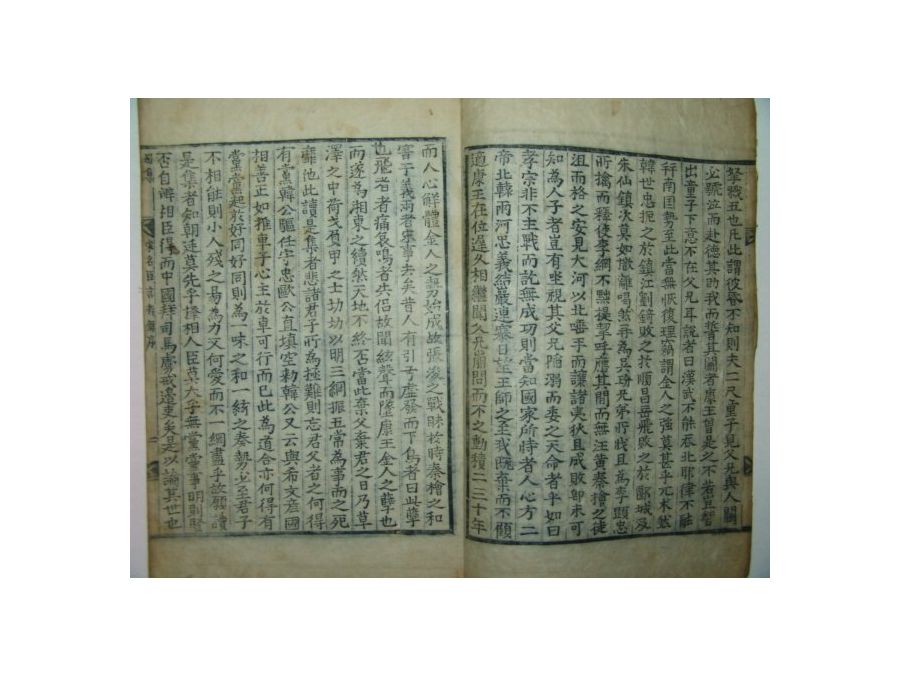 挈戰五也凡此謂彼吝不知則夫二尺童子見父兄與人鬪
必號泣而赴德其助我而誓其鬪者康王曾是之不若豈智
出童子下意不在父兄耳說者曰漢武不能吞北耶律不能
南国勢至此當無恢復理竊謂金人之強莫甚乎元木然
韓世忠扼之於鎮江劉錡敗之於順昌岳飛敗之於郾城及
朱仙鎮次莫如撒離喝然再為吳玠兄弟所戕且為李顯忠
所擒而釋使李綱不黜提挈呼應其間而無汪黃秦檜之徒
沮而格之安見大河以北唾手而讓諸夷狄且成敗即未可
知為人子者豈有坐視其父兄陷溺而委之天命者乎如曰
孝宗非不主戰而訖無成功則當知國家所恃者人心方二
帝北轅兩河忠義結嚴連寨日望王師之至我既棄而不顧
道康王在位遅久相繼聞久怠聞問而不之動積二三十年
而人心解體金人之勢始成故張浚之戰昧於時秦檜之和
害于義兩者寧事去矣昔人有引弓虛發而下鳥者曰此孽
也飛者者痛哀鳴者失侣故聞絃聲而墮康王金人之孽也
而遂為湘東之續然天地不終否當此棄父棄君之日乃草
澤之中荷戈負甲之士切切以明三綱振五常為事而之死
靡他此讀是集者悲諸君子所為拯難則忘君父者之何得
有黨韓公軀任宇忠歐公直填空勑韓公又云與希文彦國
相善正如推車子心主於車可行而已此為道合亦何得有
黨黨起於好同好同則為一味之和一絃之奏勢必至君子
不相能則小人殘之易為力又何愛而不一網盡乎故願讀
是集者知朝廷莫先乎擇相人臣莫大乎無黨黨事明則賢
否自辨相臣得而中國拜司馬虜戒邊吏矣是以論其世也
宋名臣言行錄序